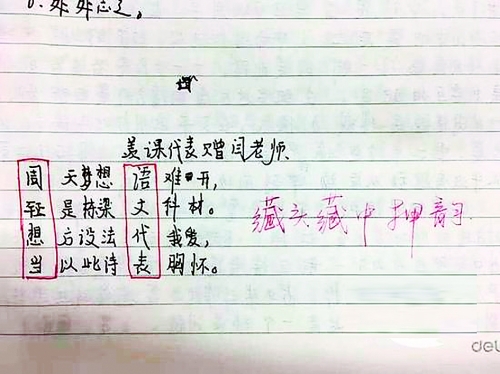 课代表赠闫老师.
周天梦想语难开,
是栋梁文科材。
想方设法代我爱,
当以此诗表胸怀。
藏头藏中押韵